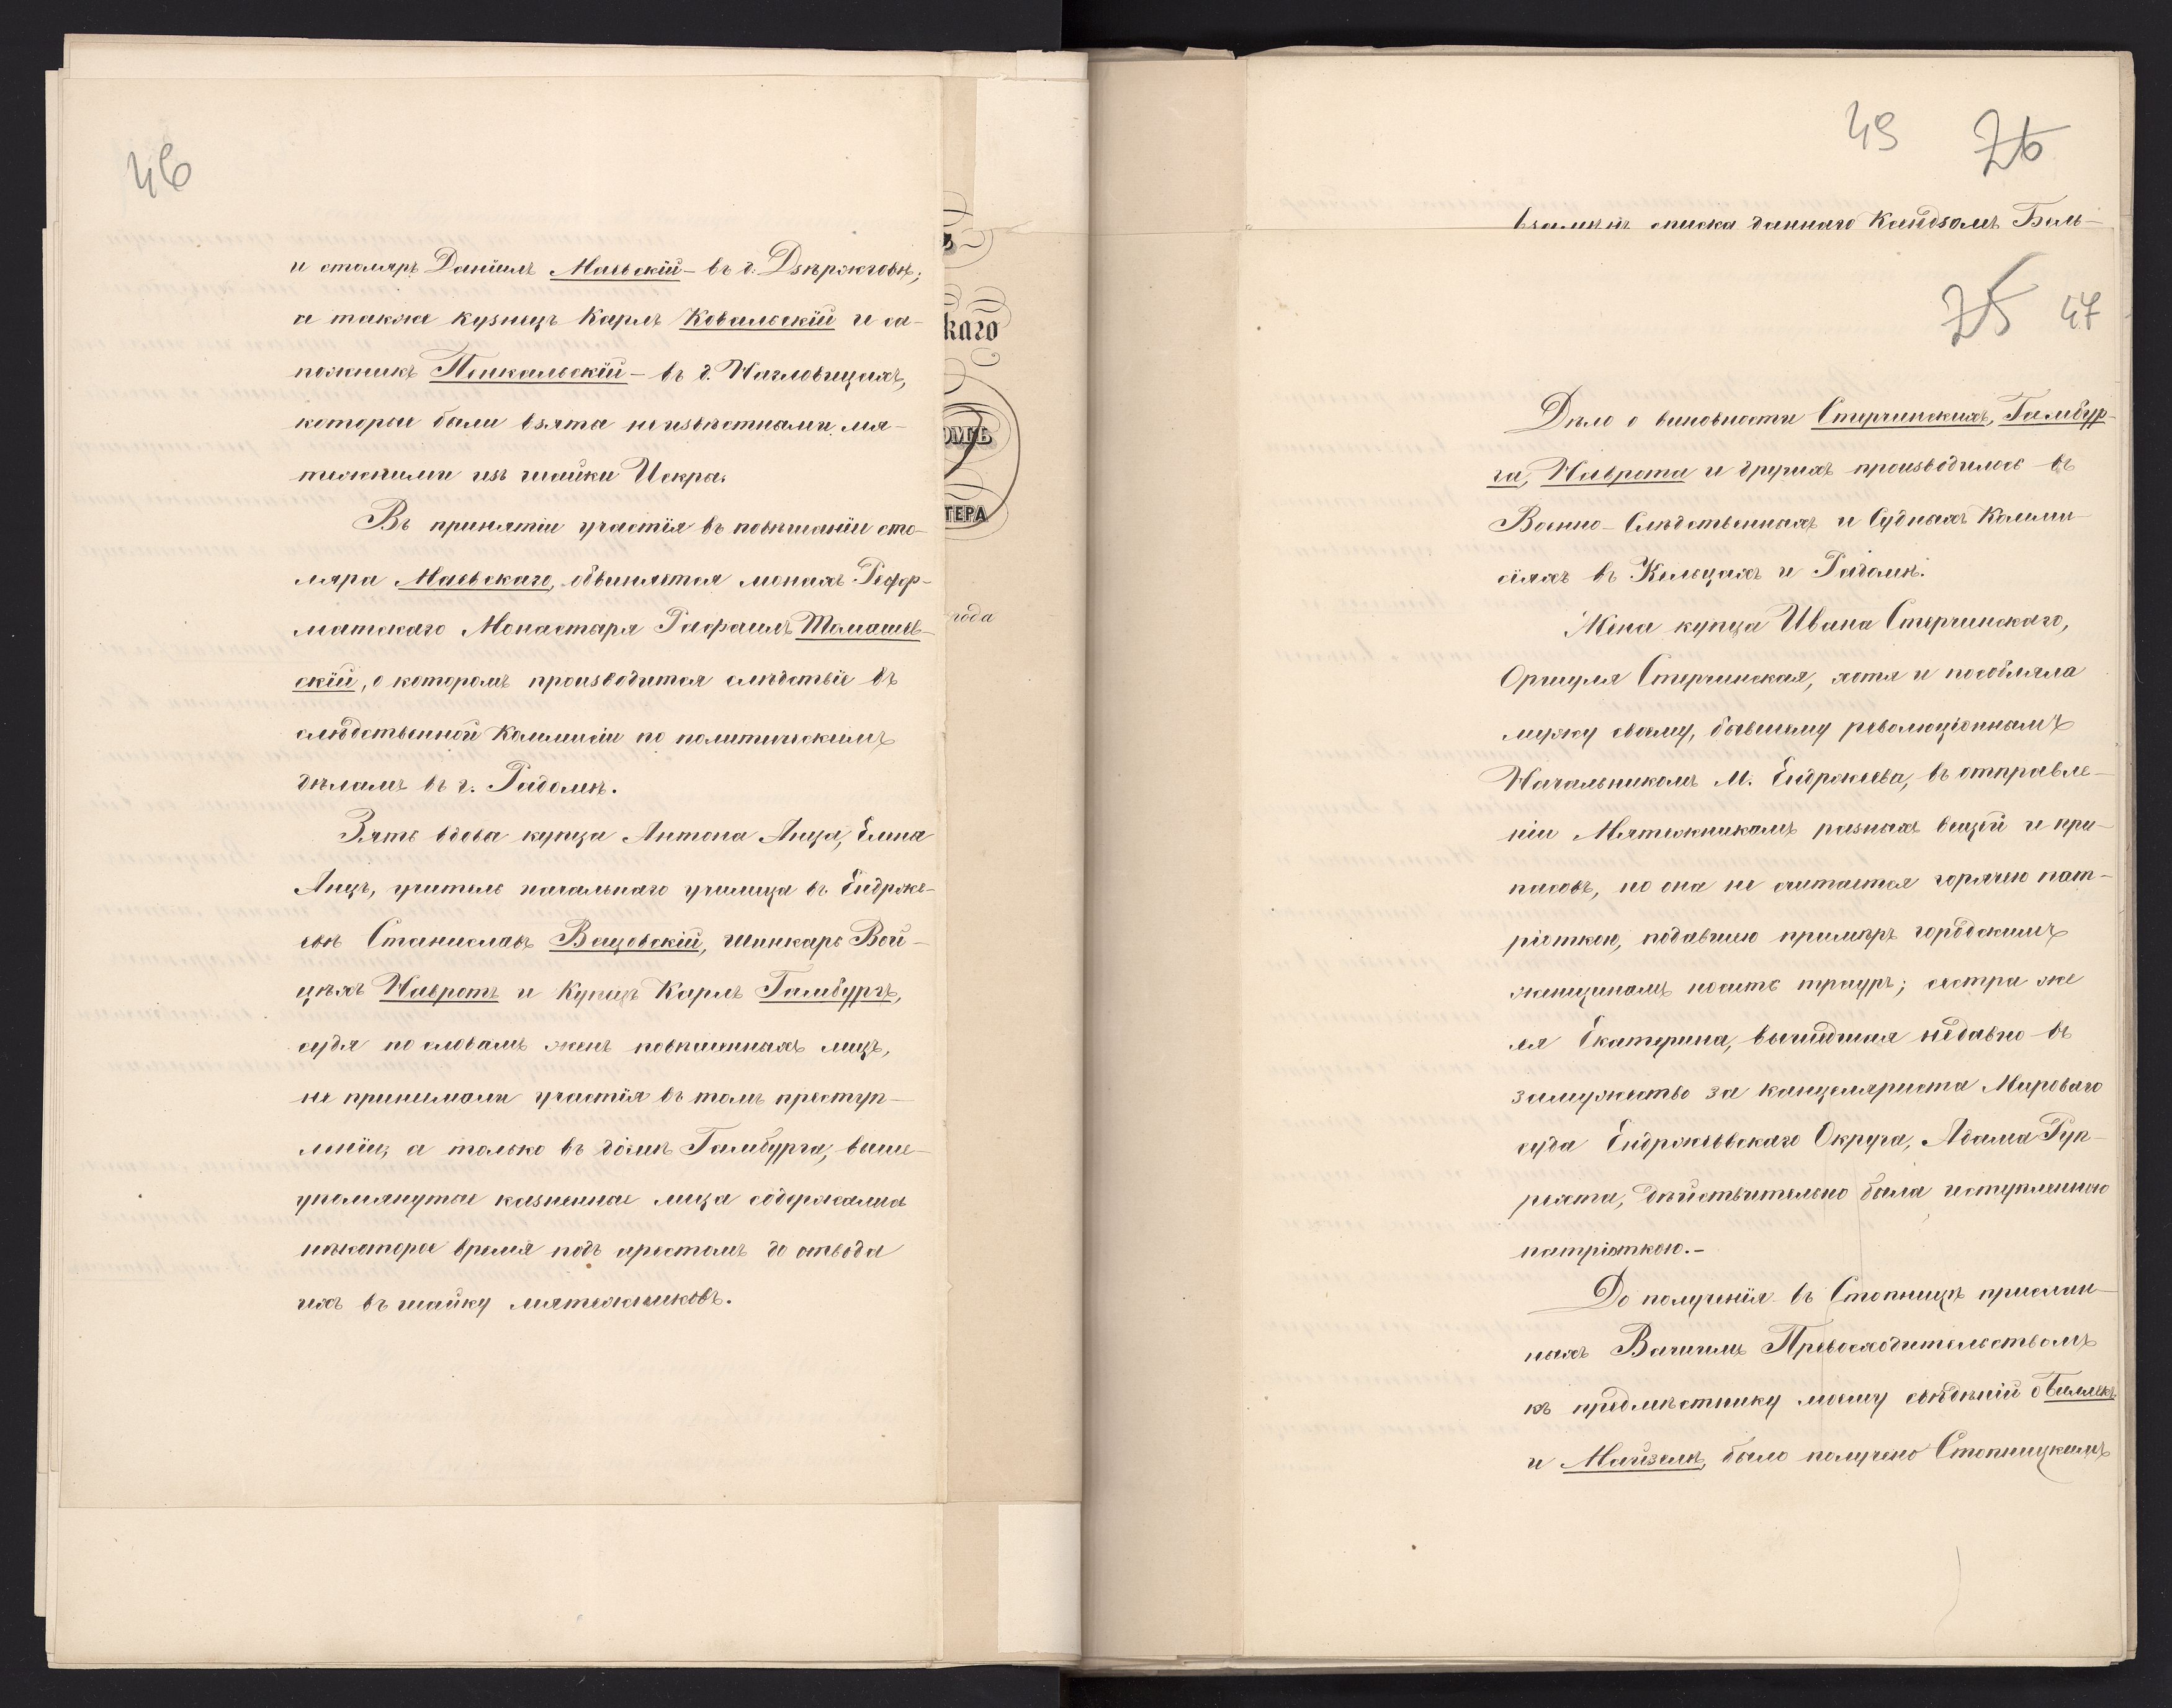 46
и столяръ Даніилъ Маевскій – въ д. Дзѣржговѣ;
а также кузнецъ Карлъ Ковальскій и са-
пожникъ Пенкальскій – въ д. Нагловицахъ,
которые были взяты неизвѣстными мя-
тежниками изъ шайки Искры.
Въ принятіи участія въ повѣшаніи сто-
ляра Маевскаго, обвиняется монахъ Рефор-
матскаго Монастыря Рафаилъ Томашев-
скій, о которомъ производится слѣдствіе въ
слѣдственной Коммисіи по политическимъ
дѣламъ въ г. Радомѣ.
Зять вдовы купца Антона Анца, Елена
Анцъ, учитель начальнаго училища въ Ендрже-
евѣ Станиславъ Вецовскій, шинкарь Вой-
цѣхъ Навротъ и Купецъ Карлъ Гамбургъ,
судя по словамъ женъ повѣшенныхъ лицъ,
не принимали участія въ томъ преступ-
леніи, а только въ домѣ Гамбурга, выше-
упомянутые казненные лица содержались
нѣкоторое время подъ арестомъ до отвода
ихъ въ шайку мятежниковъ.
каго
ОМЪ
ТЕРА
года
49 26
взаменъ списка даннаго Ксендзомъ Бѣль-
25 47
Дѣло о виновности Стерчинскихъ, Гамбур-
га, Наврота и другихъ производилось въ
Военно-Слѣдственныхъ и Судныхъ Комми-
сіяхъ въ Кельцахъ и Радомѣ.
Жена купца Ивана Стерчинскаго,
Оршуля Стерчинская, хотя и пособляла
мужу своему, бывшему революціоннымъ
Начальникомъ М. Ендржеева, въ отправле-
ніи Мятежникамъ разныхъ вещей и при-
пасовъ, но она не считается горячею пат-
ріоткою, подавшею примѣръ городскимъ
женщинамъ носить трауръ; сестра же
ея Екатерина, вышедшая недавно въ
замужество за канцеляриста Мироваго
суда Ендржеевскаго Округа, Адама Руп-
рехта, дѣйствительно была изступленною
патріоткою.–
До полученія въ Стопницѣ прислан-
ныхъ Вашимъ Превосходительствомъ
къ предмѣстнику моему свѣдѣній о
и Майзелѣ, было получено Стопницкимъ